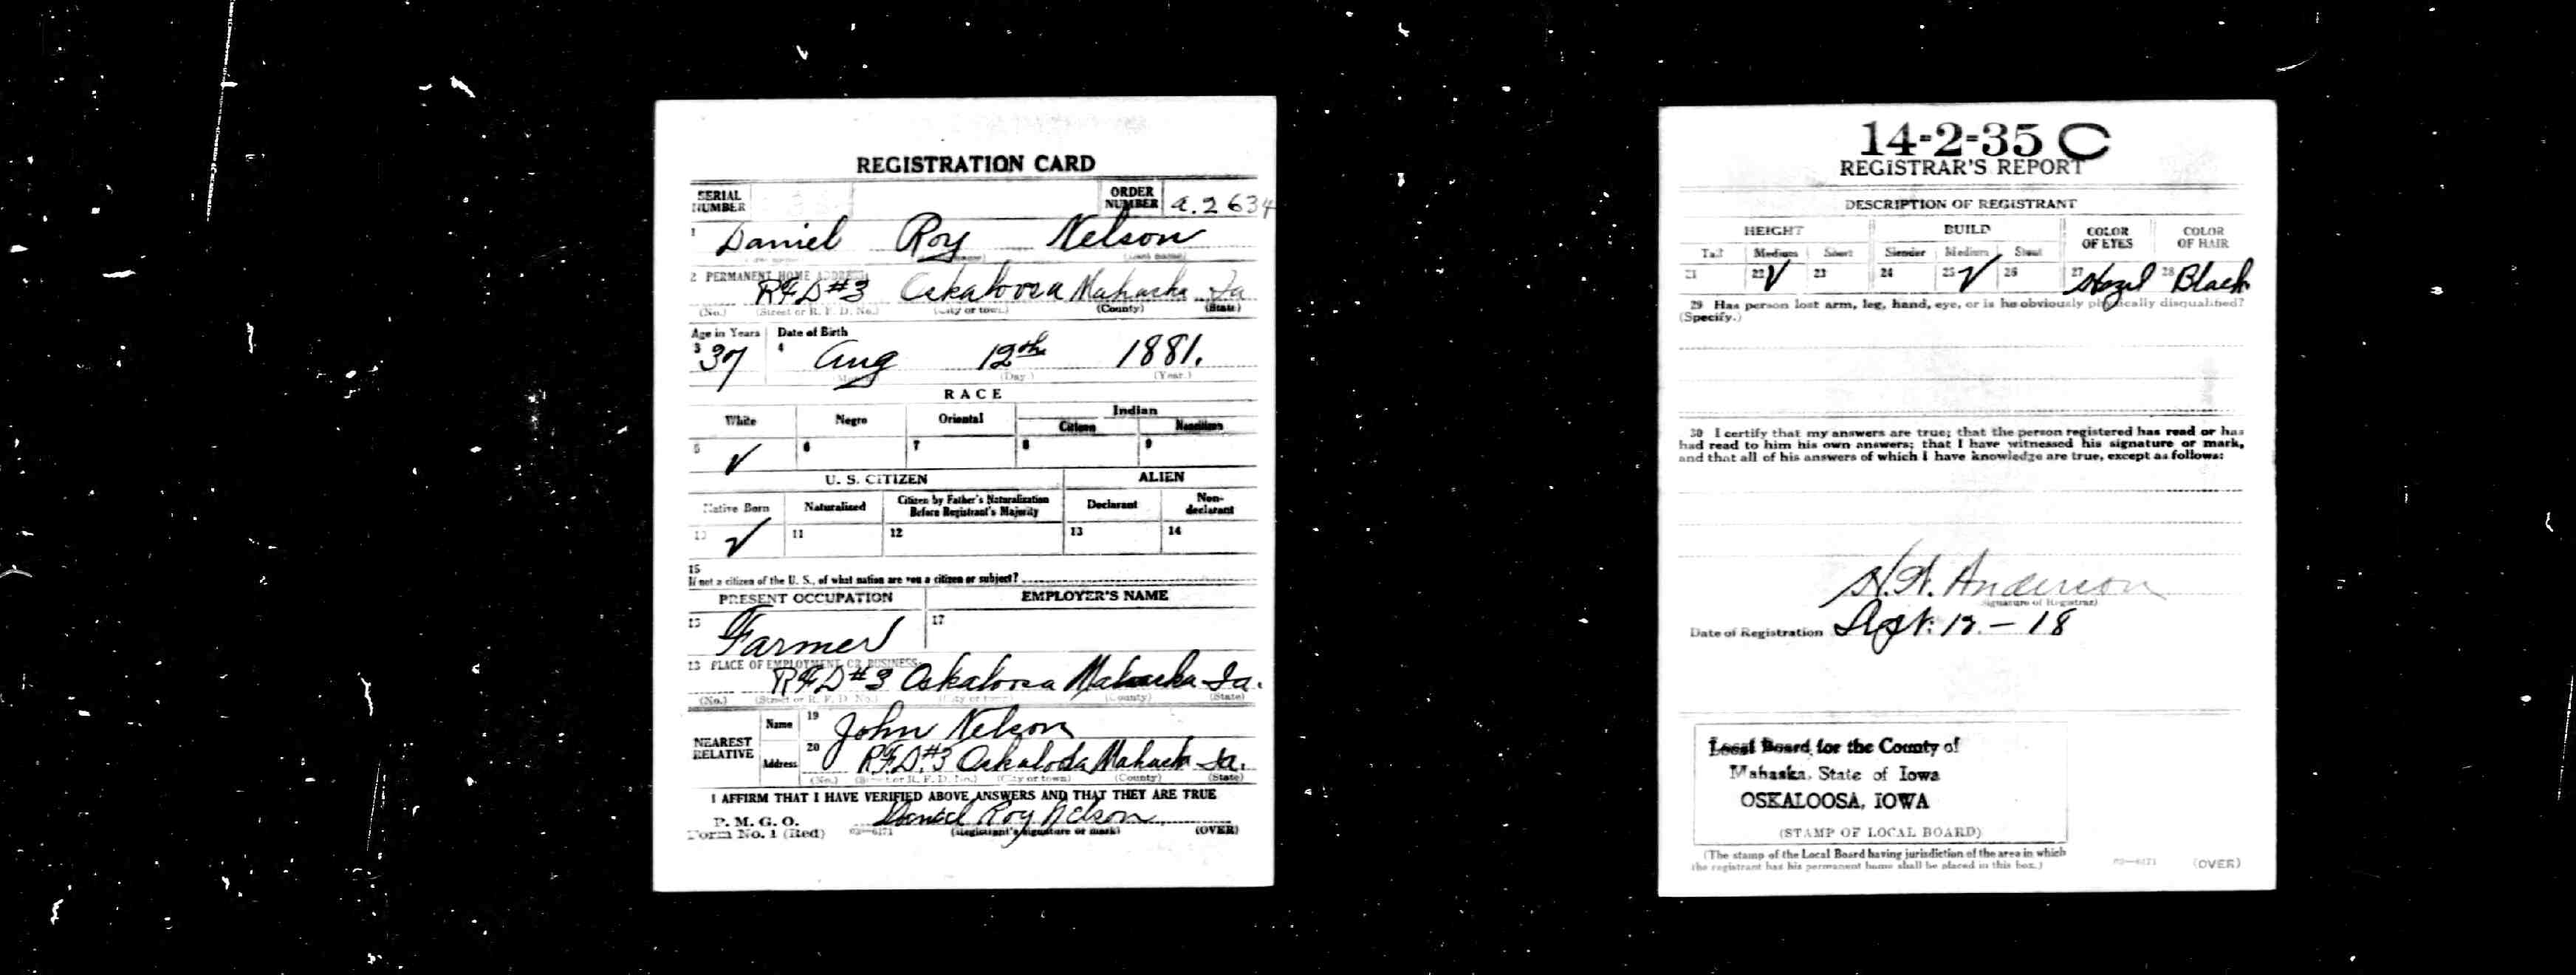 REGISTRATION CARD
SERIAL NUMBER ORDER NUMBER a.2634
1 Daniel Roy Nelson
2 PERMANENT HOME ADDRESS:
RFD #3 Oskaloosa Mahaska Ia
(No.) (Street or R. F. D. No.) (City or town) (County) (State)
Age in Years Date of Birth
3 37 4 Aug 12th 1881.
(Day.) (Year.)
RACE
White Negro Oriental Indian
Citizen Noncitizen
5 ✓ 6 7 8 9
U. S. CITIZEN ALIEN
Native Born Naturalized Citizen by Father's Naturalization Before Registrant's Majority Declarant Non-declarant
10 ✓ 11 12 13 14
15
If not a citizen of the U. S., of what nation are you a citizen or subject?
PRESENT OCCUPATION EMPLOYER'S NAME
Farmer 17
PLACE OF EMPLOYMENT OR BUSINESS:
RFD #3 Oskaloosa Mahaska Ia.
(No.) (Street or R. F. D. No.) (City or town) (County) (State)
NEAREST RELATIVE
Name 19 John Nelson
Address 20 RFD. #3 Oskaloosa Mahaska Ia.
(No.) (Street or R. F. D. No.) (City or town) (County) (State)
I AFFIRM THAT I HAVE VERIFIED ABOVE ANSWERS AND THAT THEY ARE TRUE
P. M. G. O. Daniel Roy Nelson
Form No. 1 (Red) 03—6171 (Registrant's signature or mark) (OVER)
14-2-35 C
REGISTRAR'S REPORT
DESCRIPTION OF REGISTRANT
HEIGHT BUILD COLOR OF EYES COLOR OF HAIR
Tall Medium Short Slender Medium Stout
21 22 ✓ 23 24 25 ✓ 26 27 Hazel 28 Black
29 Has person lost arm, leg, hand, eye, or is he obviously physically disqualified?
(Specify.)
30 I certify that my answers are true; that the person registered has read or has
had read to him his own answers; that I have witnessed his signature or mark,
and that all of his answers of which I have knowledge are true, except as follows:
Anderson
(Signature of Registrar)
Date of Registration Sept. 12 - 18
Local Board for the County of
Mahaska, State of Iowa
OSKALOOSA, IOWA
(STAMP OF LOCAL BOARD)
(The stamp of the Local Board having jurisdiction of the area in which
the registrant has his permanent home shall be placed in this box.)
03—6171 (OVER)